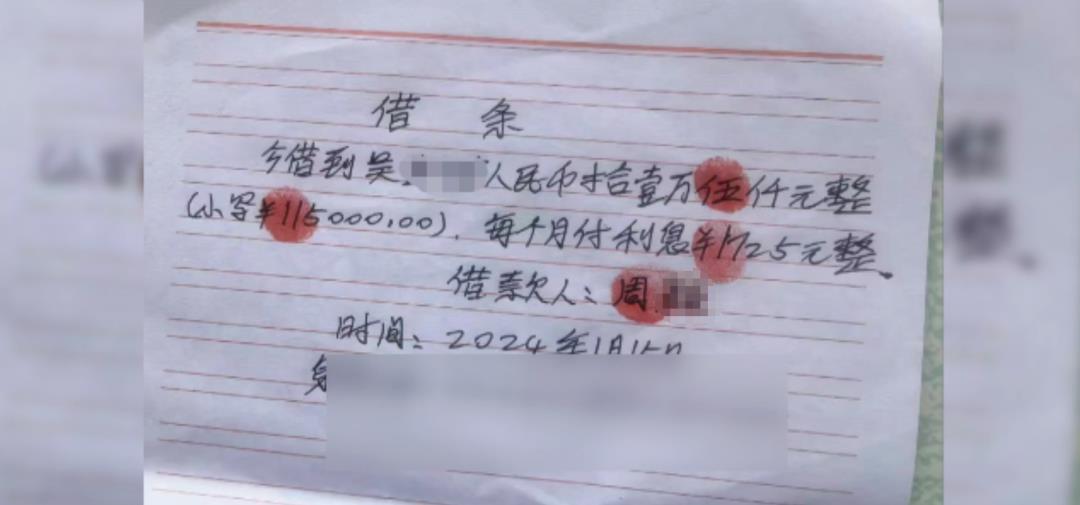 借 条
今借到吴 人民币拾壹万伍仟元整
(小写¥115000.00)，每个月付利息¥1725元整。
借款人：周
时间：2024年1月15日